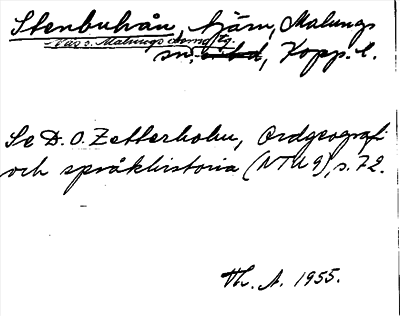 Stenbuhån, tjärn, Malungs
Väs s. Malungs
sn, Kopp. l.
Se D. O. Zetterholm, Ordgeografi
och språkhistoria (NTU 9), s. 72.
Th. A. 1955.